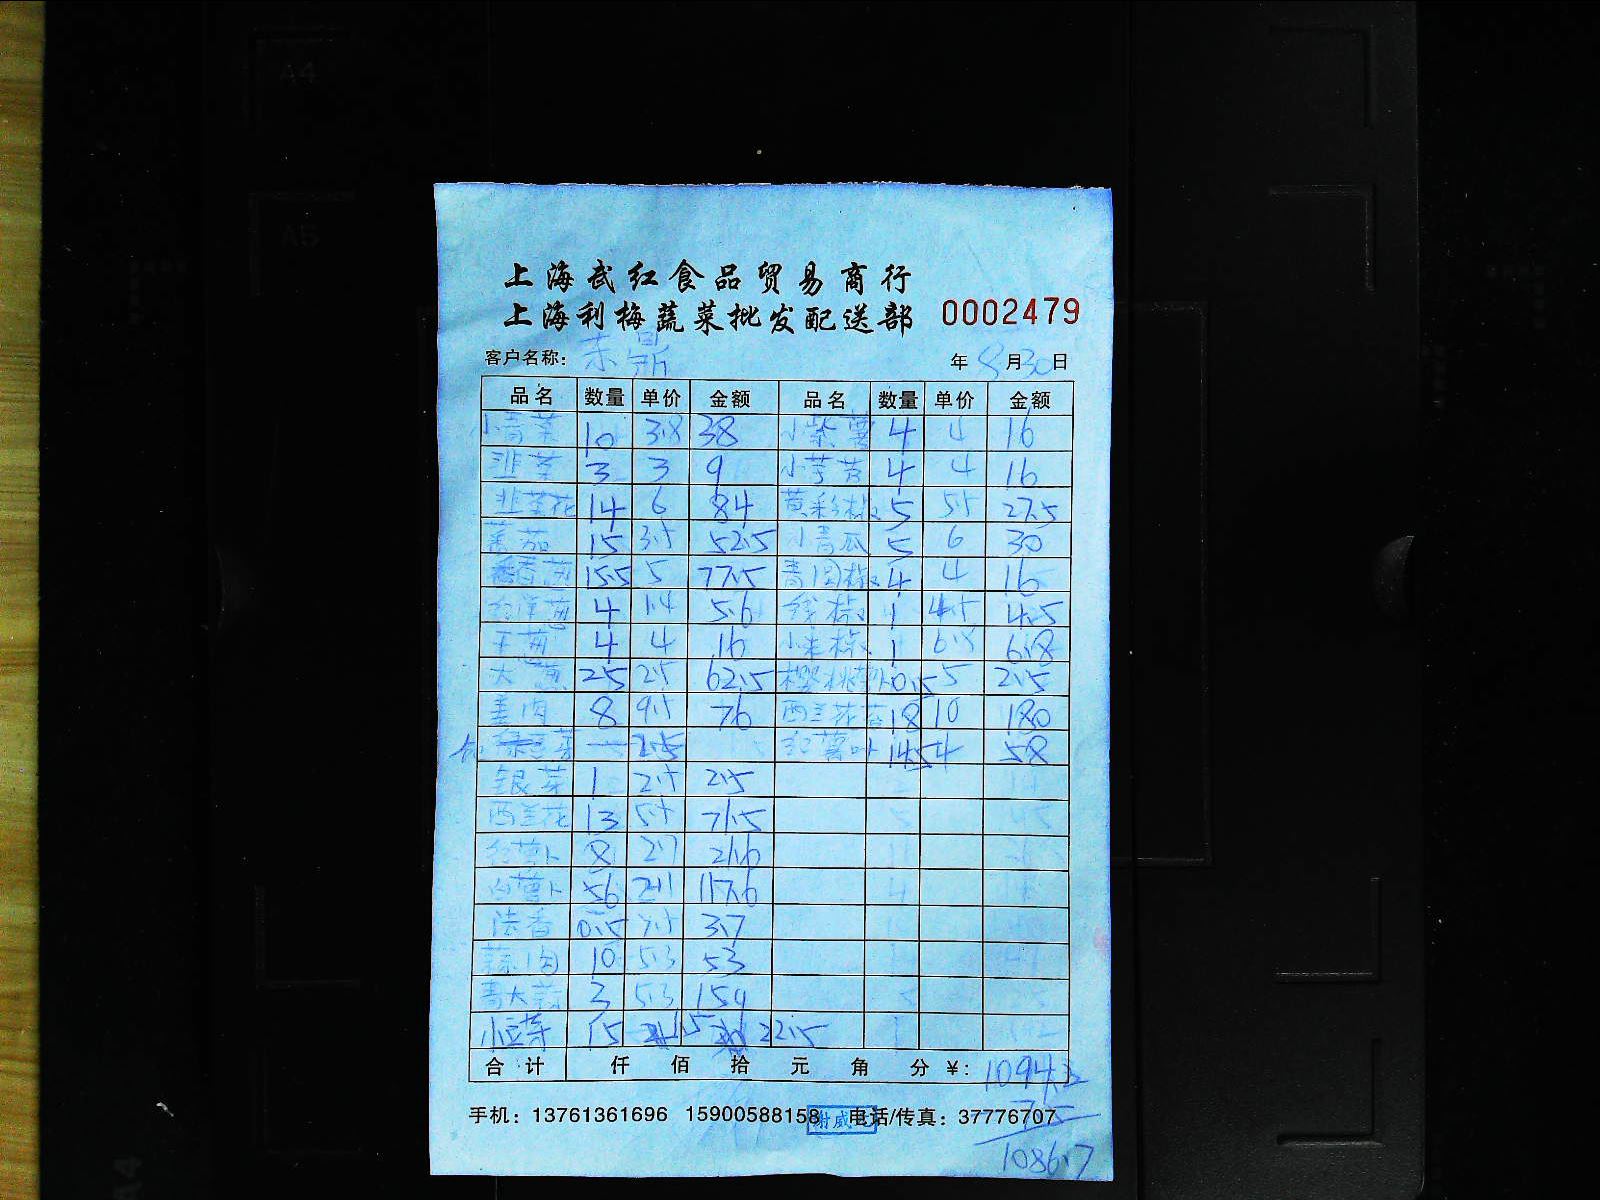 A4
A5
上海武红食品贸易商行
上海利梅蔬菜批发配送部 0002479
客户名称: 鼎 年 8月30日
品名 数量 单价 金额 品名 数量 单价 金额
小青菜 10 3.8 38 小紫薯 4 4 16
韭菜 3 3 9 小芋艿 4 4 16
韭菜花 14 6 84 黄彩椒 5 5.5 27.5
蕃茄 15 3.5 52.5 小青瓜 5 6 30
15.5 5 77.5 青圆椒 4 4 16
洋葱 4 1.4 5.6 线椒 1 4.5 4.5
葱 4 4 16 小米椒 1 6.8 6.8
大葱 25 2.5 62.5 樱桃萝卜 0.5 5 2.5
姜肉 8 9.5 76 西兰花苔 18 10 180
菜 2.5 红薯叶 14.5 4 58
银芽 1 2.5 2.5
西兰花 13 5.5 71.5
红萝卜 8 2.7 21.6
白萝卜 56 2.1 117.6
法香 0.5 7.5 3.7
蒜肉 10 5.3 53
青大蒜 3 5.3 15.9
小豆芽 15 1.5 22.5
合计 仟 佰 拾 元 角 分 ¥: 1094.2
手机: 13761361696 15900588158 电话/传真: 37776707
7.5
1086.7
A4